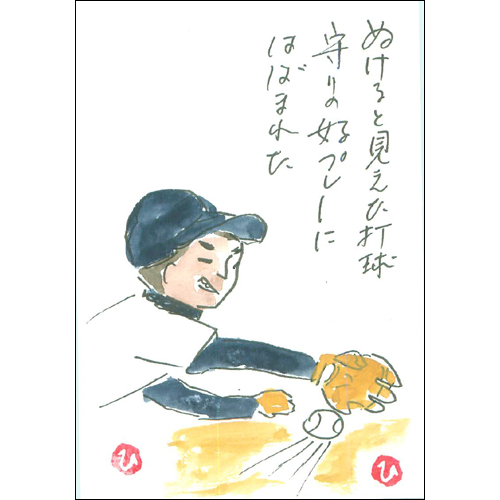 ぬけると見えた打球
守りの好プレーに
はばまれた
ひ
ひ